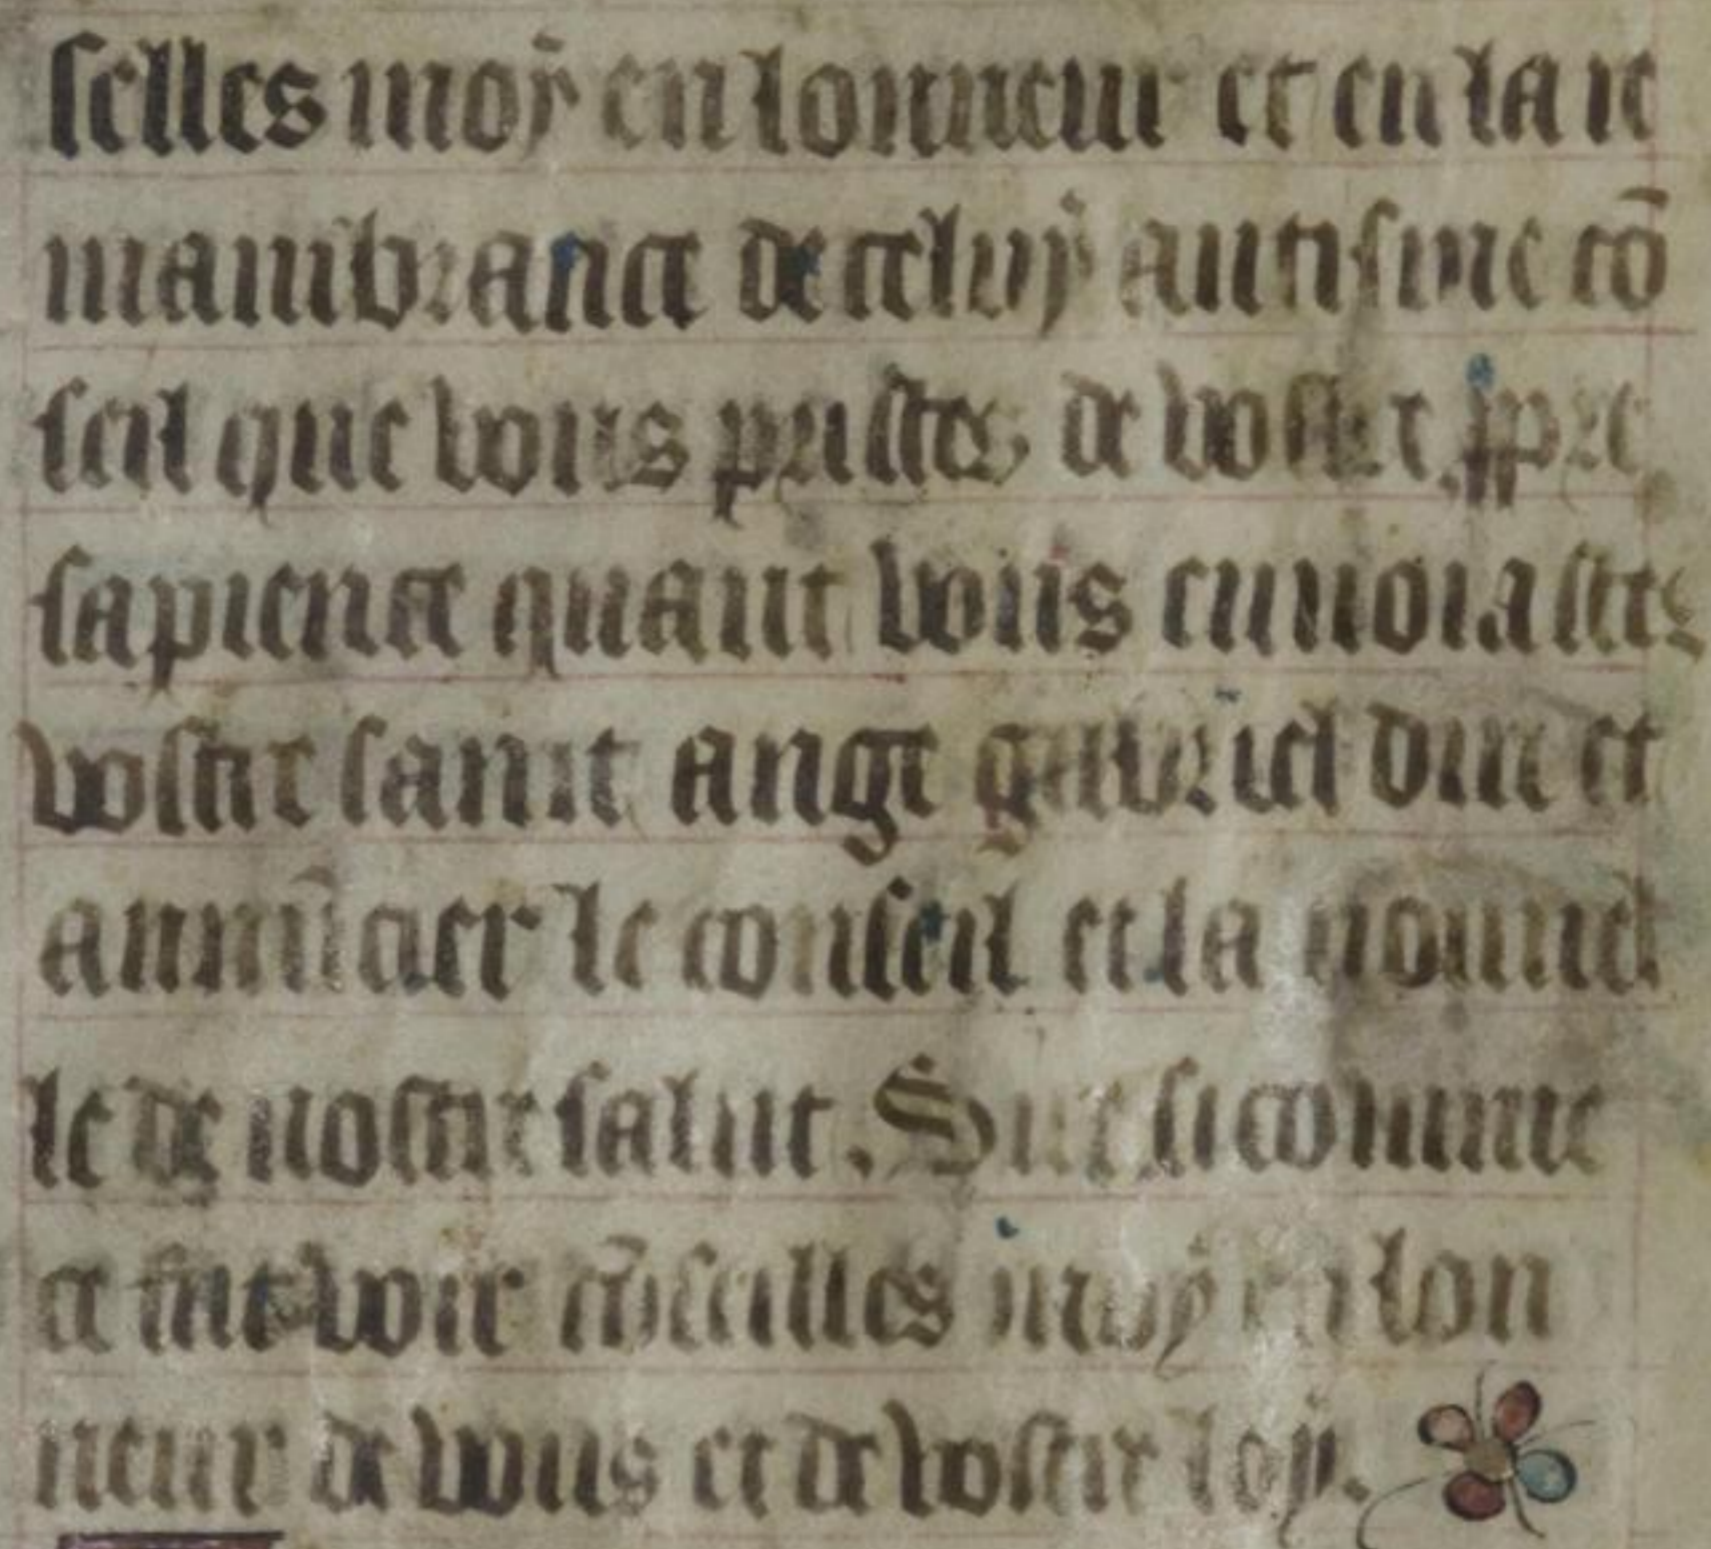 selles moy en lonneur et en la re
manibrance de celuy autisme cō
seil que vous preistes de vostre ppre
sapience quant vous enuoiastes
vostre saint ange gabriel dire et
annūcier le conseil et la nouuel
le de nostre salut. Sire si comme
ce fut voir cōseilles moy en lon
neur de vous et de vostre loy.